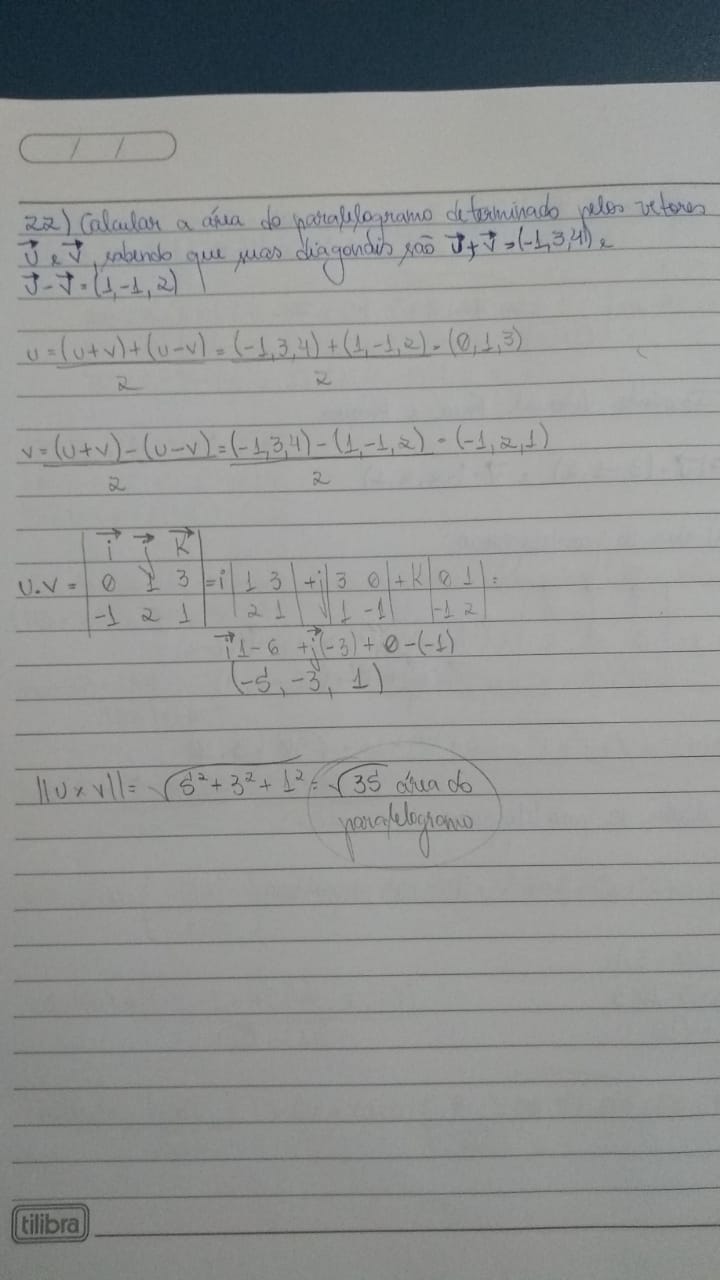 / /
22) Calcular a área do paralelogramo determinado pelos vetores
U⃗ e V⃗, sabendo que suas diagonais são U⃗+V⃗=(-1,3,4) e
U⃗-V⃗=(1,-1,2)
U=(U+V)+(U-V)=(-1,3,4)+(1,-1,2)=(0,1,3)
2 2
V=(U+V)-(U-V)=(-1,3,4)-(1,-1,2)=(-1,2,1)
2 2
|i⃗ j⃗ K⃗|
U.V=|0 1 3|=i|1 3|+j|3 0|+K|0 1|=
|-1 2 1| |2 1| |1 -1| |-1 2|
i⃗1-6+j⃗(-3)+0-(-1)
(-5,-3,1)
||U×V||=√5²+3²+1²=√35 área do
paralelogramo
tilibra